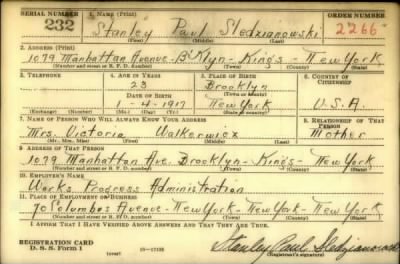 SERIAL NUMBER 1. NAME (Print) ORDER NUMBER
232 Stanley Paul Sledzianowski 2266
(First) (Middle) (Last)
2. ADDRESS (Print)
1079 Manhattan Avenue - B'Klyn - Kings New York
(Number and street or R. F. D. number) (Town) (County) (State)
3. TELEPHONE 4. AGE IN YEARS 5. PLACE OF BIRTH 6. COUNTRY OF CITIZENSHIP
23 Brooklyn
DATE OF BIRTH (Town or county)
1-4-1917 New York U.S.A.
(Exchange) (Number) (Mo.) (Day) (Yr.) (State or country)
7. NAME OF PERSON WHO WILL ALWAYS KNOW YOUR ADDRESS 8. RELATIONSHIP OF THAT PERSON
Mrs. Victoria Walkerwicz Mother
(Mr., Mrs., Miss) (First) (Middle) (Last)
9. ADDRESS OF THAT PERSON
1079 Manhattan Ave. Brooklyn - Kings - New York
(Number and street or R. F. D. number) (Town) (County) (State)
10. EMPLOYER'S NAME
Works Progress Administration
11. PLACE OF EMPLOYMENT OR BUSINESS
70 Columbus Avenue - New York - New York - New York
(Number and street or R. F. D. number) (Town) (County) (State)
I AFFIRM THAT I HAVE VERIFIED ABOVE ANSWERS AND THAT THEY ARE TRUE.
REGISTRATION CARD
D. S. S. FORM 1 16-17105 Stanley Paul Sledzianowski
(over) (Registrant's signature)